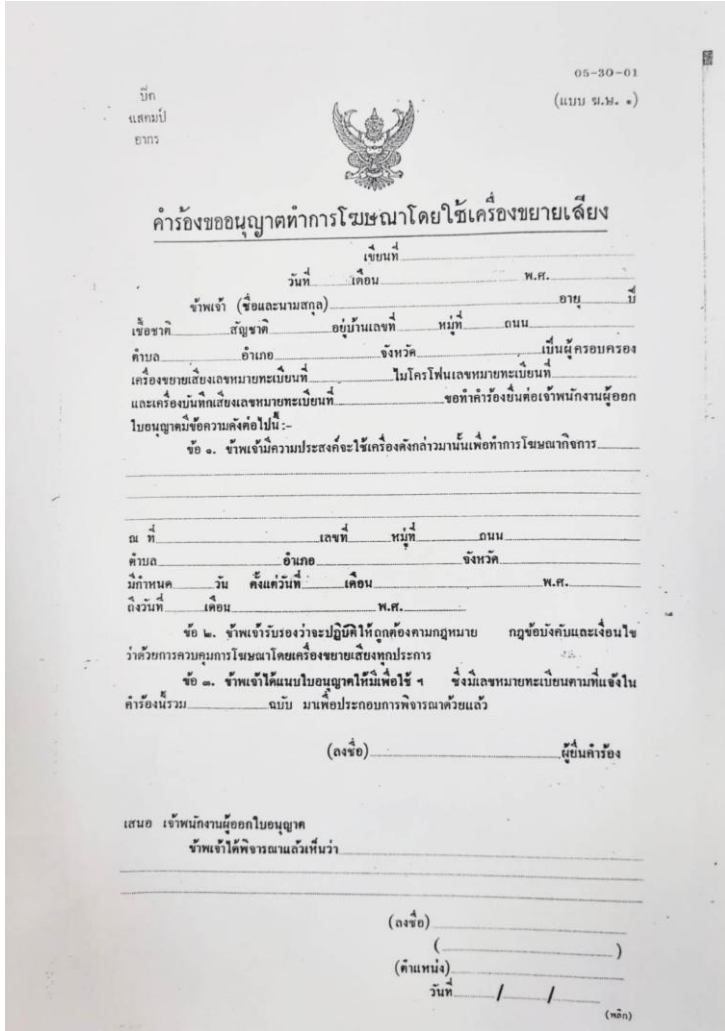 05-30-01
ปิด
แสตมป์
อากร
(แบบ ฆ.ษ. ๑)
คำร้องขออนุญาตทำการโฆษณาโดยใช้เครื่องขยายเสียง
เขียนที่
วันที่ เดือน พ.ศ.
ข้าพเจ้า (ชื่อและนามสกุล) อายุ ปี
เชื้อชาติ สัญชาติ อยู่บ้านเลขที่ หมู่ที่ ถนน
ตำบล อำเภอ จังหวัด เป็นผู้ครอบครอง
เครื่องขยายเสียงเลขหมายทะเบียนที่ ไมโครโฟนเลขหมายทะเบียนที่
และเครื่องบันทึกเสียงเลขหมายทะเบียนที่ ขอทำคำร้องยื่นต่อเจ้าพนักงานผู้ออก
ใบอนุญาตมีข้อความดังต่อไปนี้ :-
ข้อ ๑. ข้าพเจ้ามีความประสงค์จะใช้เครื่องดังกล่าวมานั้นเพื่อทำการโฆษณากิจการ
ณ ที่ เลขที่ หมู่ที่ ถนน
ตำบล อำเภอ จังหวัด
มีกำหนด วัน ตั้งแต่วันที่ เดือน พ.ศ.
ถึงวันที่ เดือน พ.ศ.
ข้อ ๒. ข้าพเจ้ารับรองว่าจะปฏิบัติให้ถูกต้องตามกฎหมาย กฎข้อบังคับและเงื่อนไข
ว่าด้วยการควบคุมการโฆษณาโดยเครื่องขยายเสียงทุกประการ
ข้อ ๓. ข้าพเจ้าได้แนบใบอนุญาตให้มีเพื่อใช้ ฯ ซึ่งมีเลขหมายทะเบียนตามที่แจ้งใน
คำร้องนี้รวม ฉบับ มาเพื่อประกอบการพิจารณาด้วยแล้ว
(ลงชื่อ) ผู้ยื่นคำร้อง
เสนอ เจ้าพนักงานผู้ออกใบอนุญาต
ข้าพเจ้าได้พิจารณาแล้วเห็นว่า
(ลงชื่อ)
( )
(ตำแหน่ง)
วันที่ / /
(พลิก)